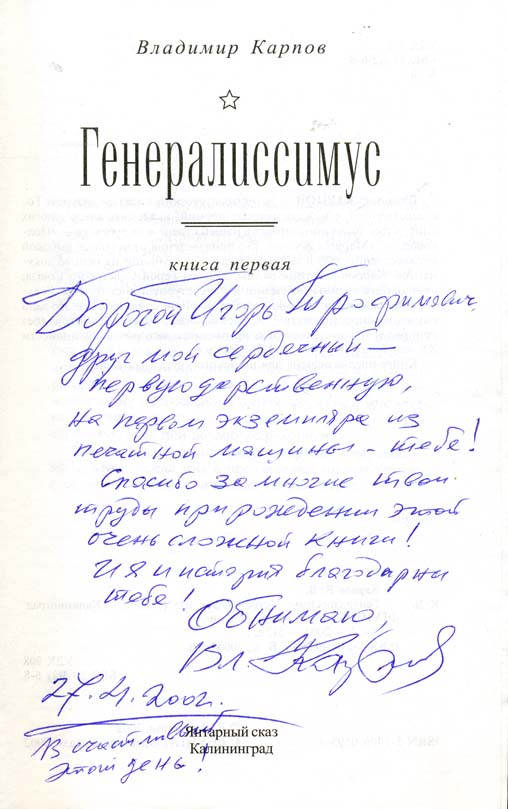 Владимир Карпов
Генералиссимус
книга первая
Дорогой Игорь Трофимович,
друг мой сердечный –
первую дарственную,
на первом экземпляре из
печатной машины – тебе!
Спасибо за многие твои
труды при рождении этой
очень сложной книги!
И я и история благодарны
тебе!
Обнимаю,
Вл. Карпов
27.4.2002.
В счастливый
этот день!
Янтарный сказ
Калининград